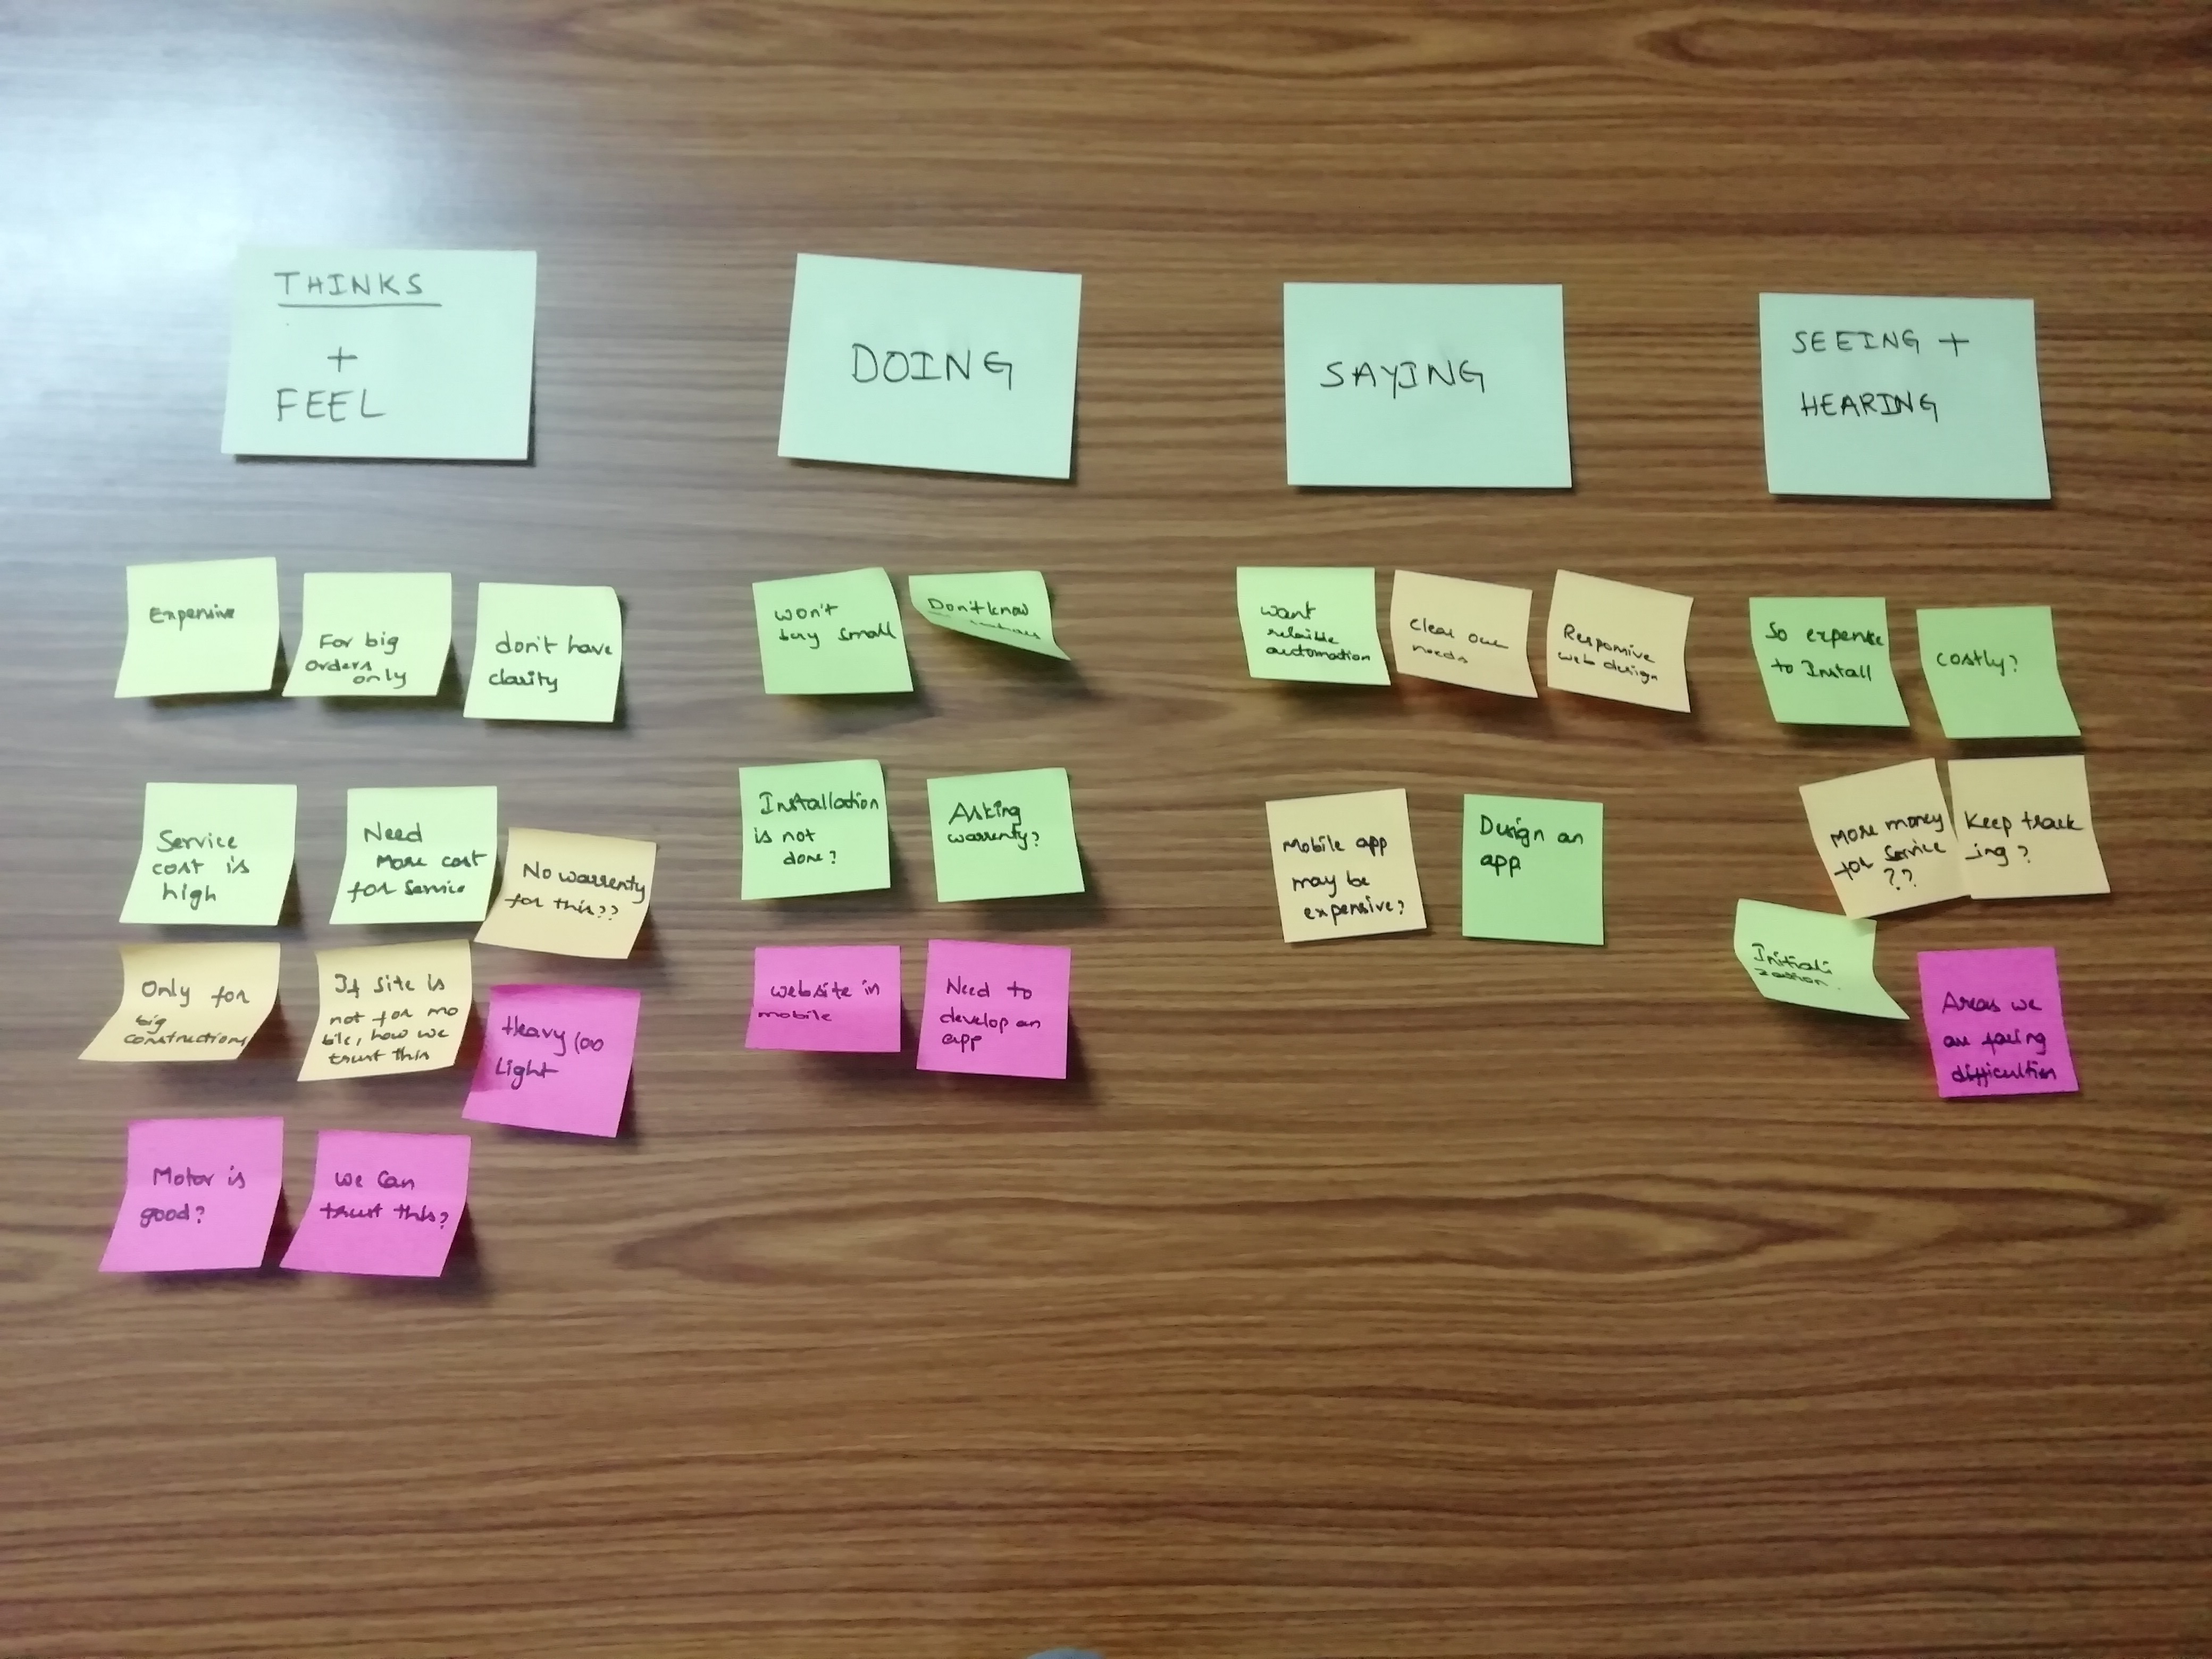 THINKS
+
FEEL
DOING
SAYING
SEEING +
HEARING
Expensive
For big
orders
only
don't have
clarity
Service
cost is
high
Need
More cost
for service
No warrenty
for this??
Only for
big
constructions
If site is
not for mo
bile, how we
trust this
Heavy (oo
Light
Motor is
good?
we can
trust this?
won't
buy small
Don't know
Installation
is not
done?
Asking
warrenty?
website in
mobile
Need to
develop an
app
want
automation
Clear our
needs
Responsive
web design
Mobile app
may be
expensive?
Design an
app
So expense
to Install
costly?
More money
for service
??
Keep track
ing?
Initiali
zation.
Areas we
are facing
difficulties